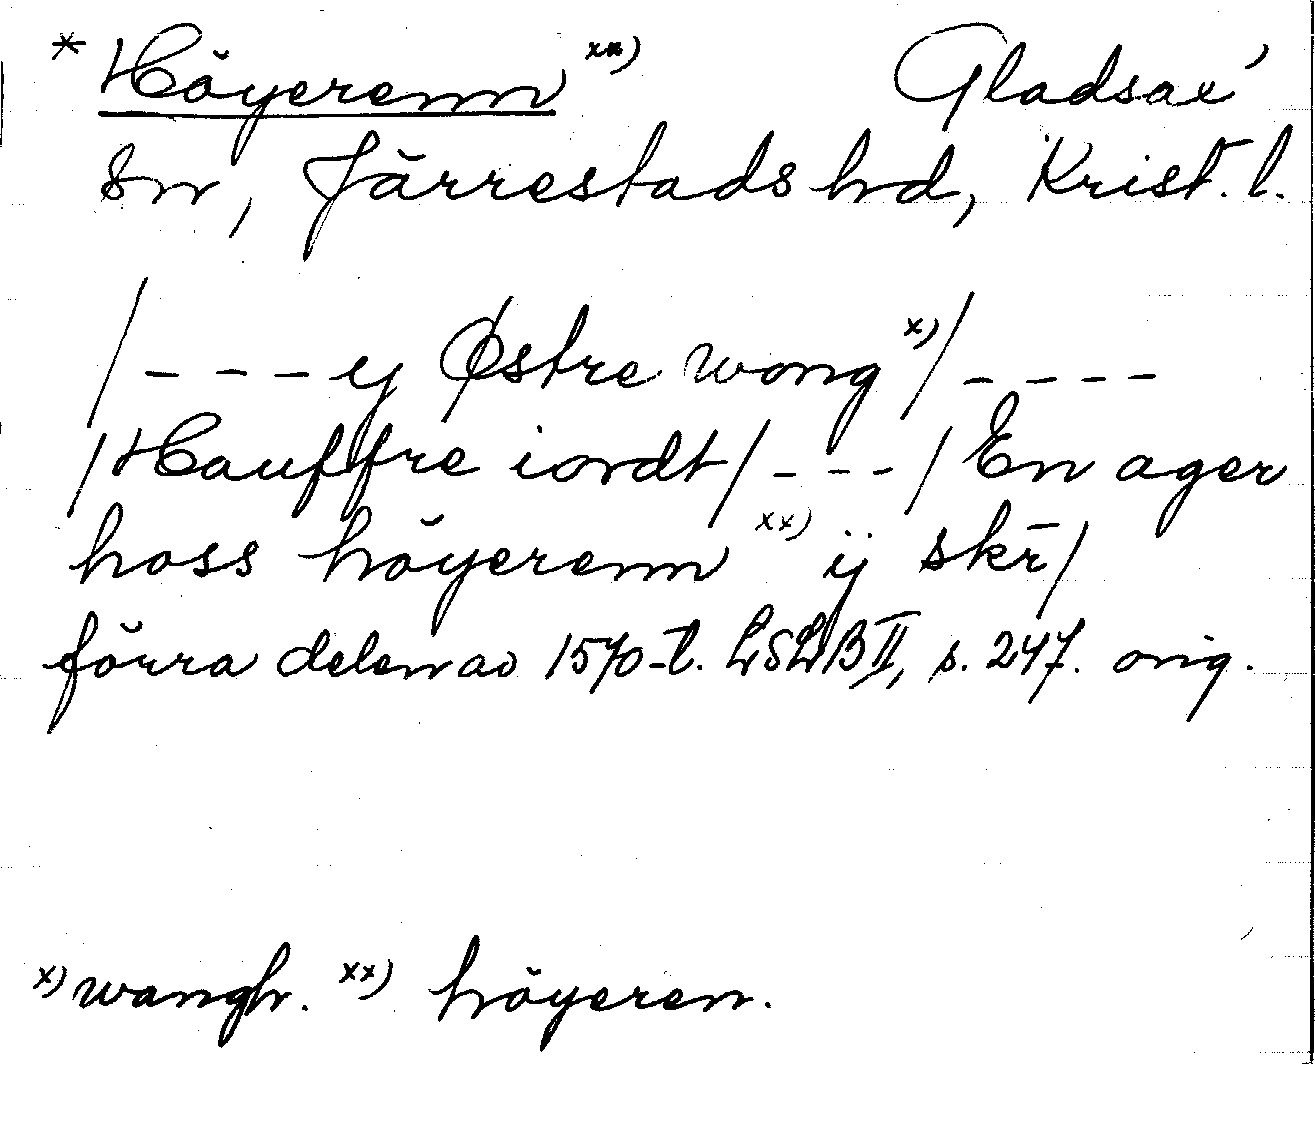 * Höyerenn xx) Gladsax
sn, Järrestads hd, Krist. l.
/---y Østre wong x)/----
/Hauffre iordt/---/En ager
hoss höyerenn xx) ÿ skr̄/
förra delen av 1570-t. LSLB II, s. 247. orig.
x) wangh. xx) höyeren.